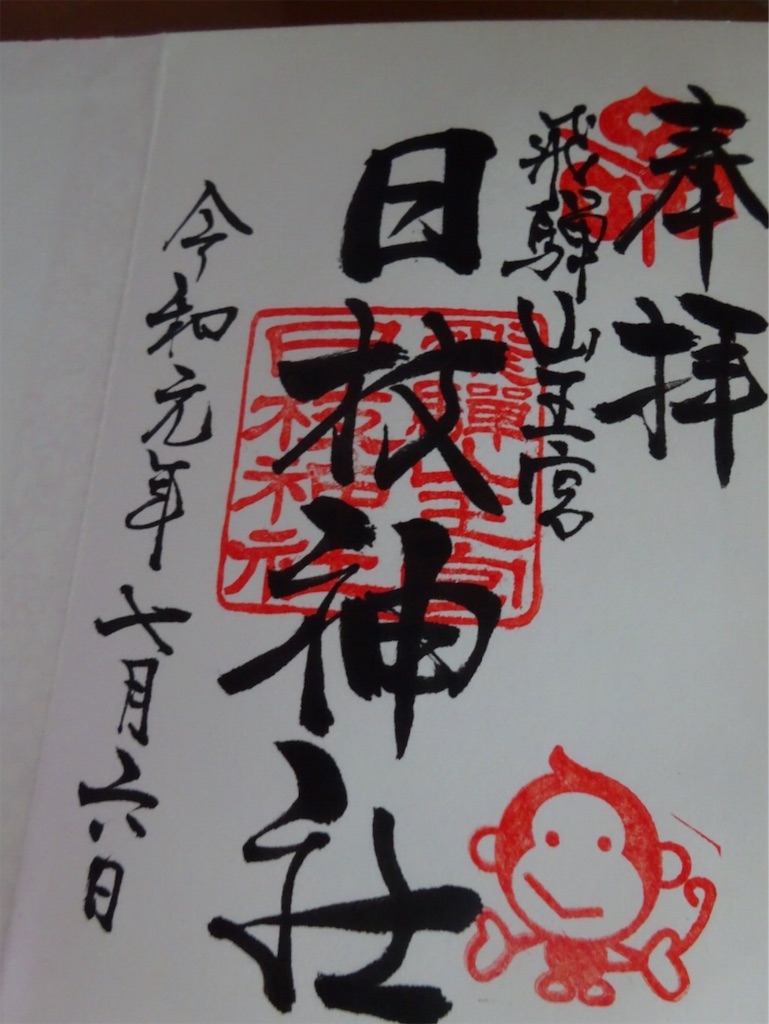 奉拝
飛騨山王宮
日枝神社
令和元年七月六日
飛騨山王宮
日枝神社